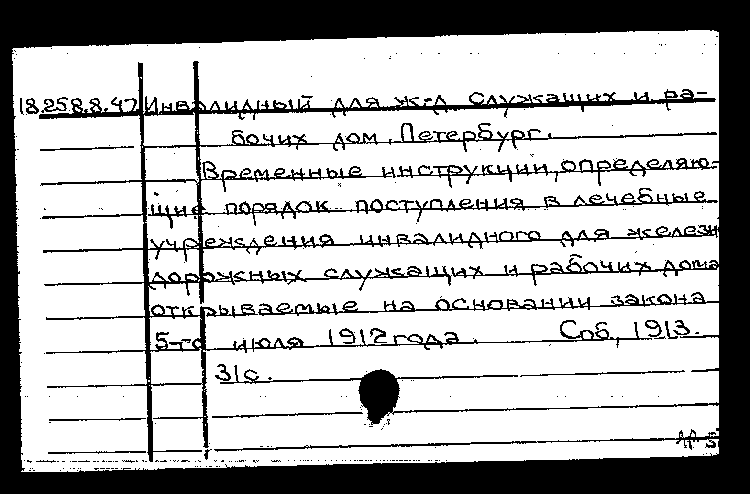 18.258.8.47 Инвалидный для ж-д служащих и ра-
бочих дом, Петербург.
Временные инструкции, определяю-
щие порядок поступления в лечебные
учреждения инвалидного для железн
дорожных служащих и рабочих дома
открываемые на основании закона
5-го июля 1912 года. Спб, 1913.
31с.